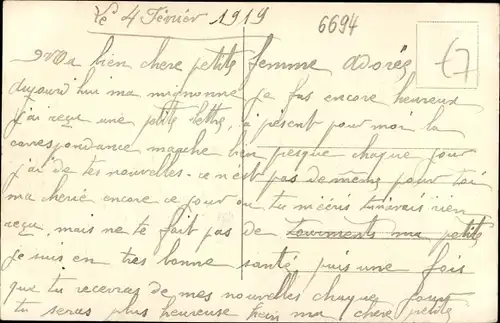 Le 4 Février 1919
6694
£7
Ma bien chere petite femme adorée
aujourd'hui ma mignonne je fus encore heureux
j'ai reçu une petite lettre, à présent pour moi la
correspondance marche bien presque chaque jour
j'ai de tes nouvelles. ce n'est pas de même pour toi
ma cherie encore ce jour ou tu m'écris tu n'avais rien
reçu, mais ne te fait pas de tourments ma petite
je suis en tres bonne santé, puis une fois
que tu recevras de mes nouvelles chaque jours
tu seras plus heureuse hein ma chere petite